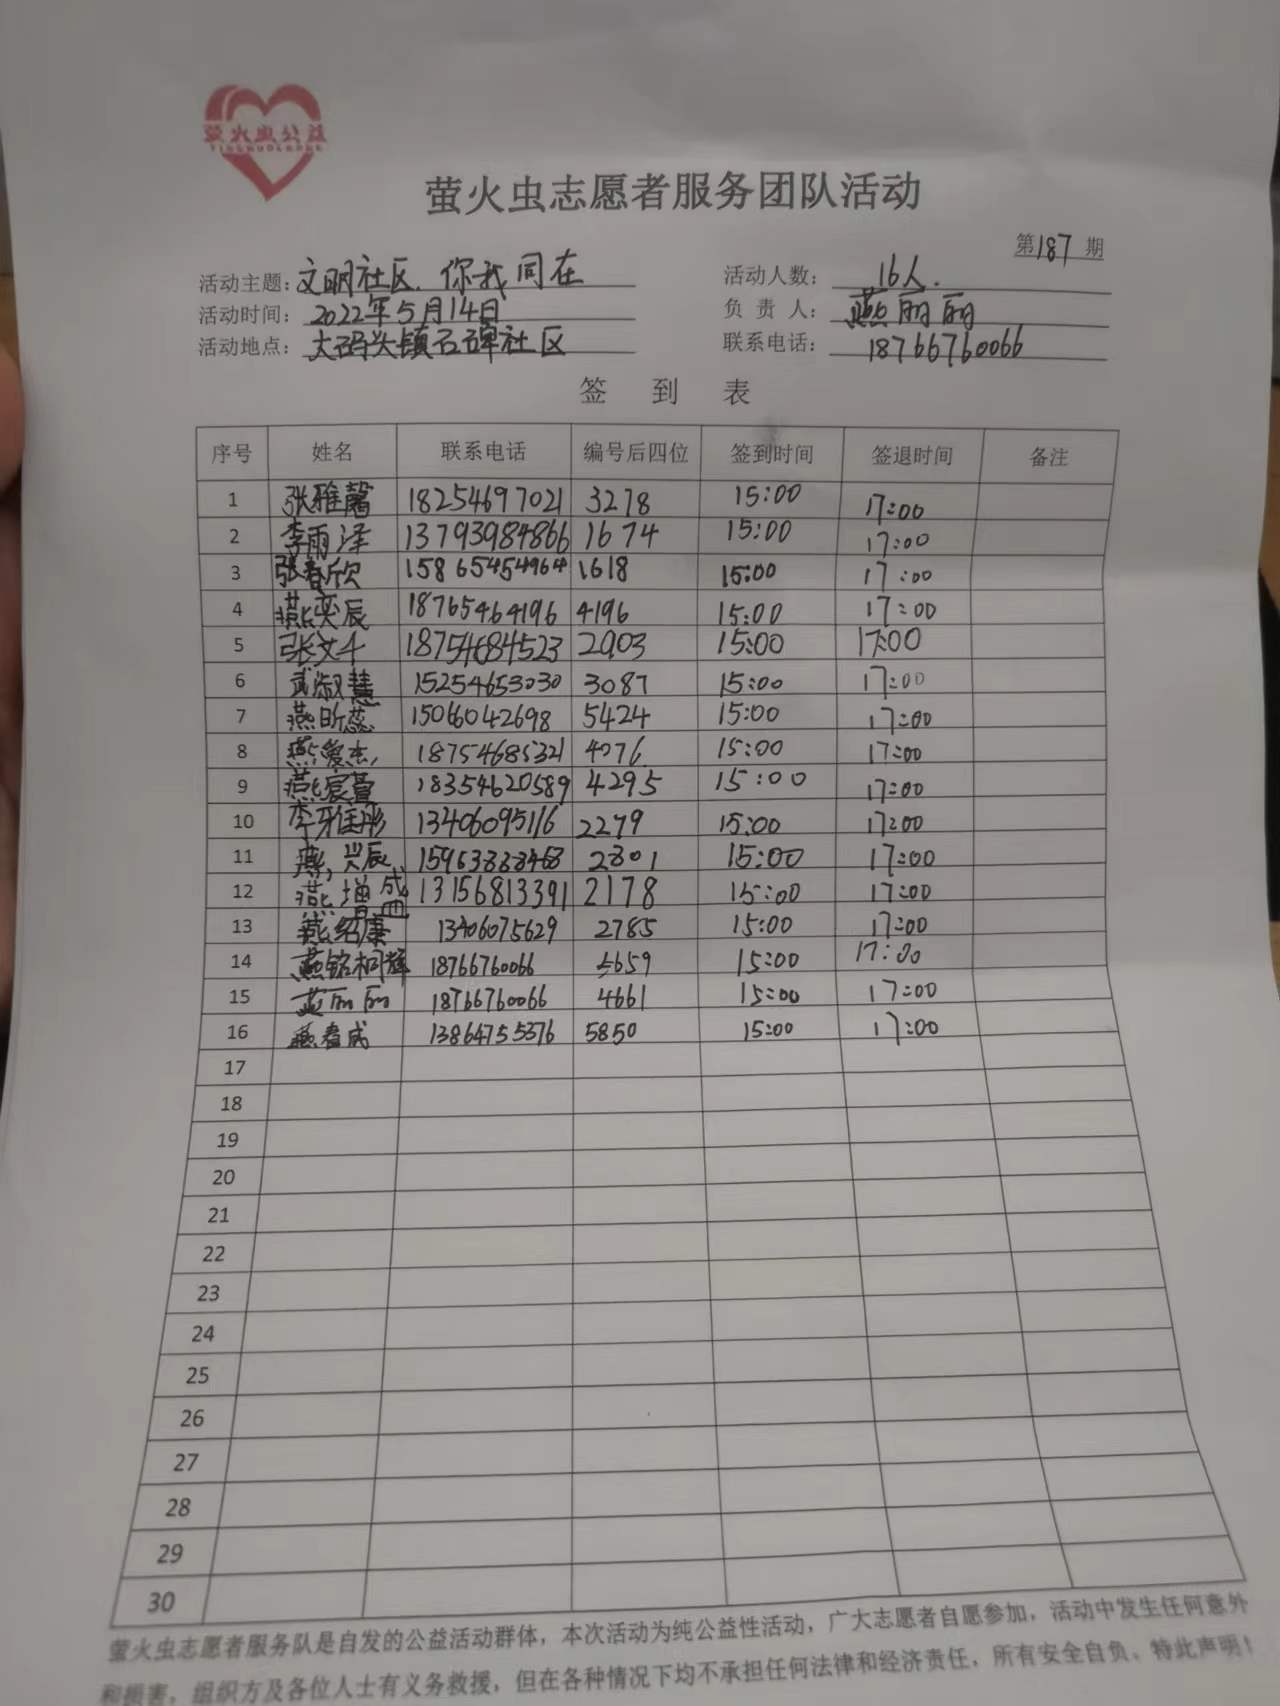 萤火虫公益
萤火虫志愿者服务团队活动
第187期
活动主题：文明社区.你我同在 活动人数：16人.
活动时间：2022年5月14日 负责人：燕丽丽
活动地点：大码头镇石碑社区 联系电话：18766760066
签到表
序号 姓名 联系电话 编号后四位 签到时间 签退时间 备注
1 张雅馨 18254697021 3278 15:00 17:00
2 李雨泽 13793984866 1674 15:00 17:00
3 张春欣 15865454964 1618 15:00 17:00
4 燕奕辰 18765464196 4196 15:00 17:00
5 张文千 18754684523 2903 15:00 17:00
6 武淑慧 15254653030 3087 15:00 17:00
7 燕昕蕊 15066042698 5424 15:00 17:00
8 燕爱杰 18754685321 4076 15:00 17:00
9 燕宸萱 18354620589 4295 15:00 17:00
10 李雅彤 13406095116 2279 15:00 17:00
11 燕兴辰 15963838468 2801 15:00 17:00
12 燕增成 13156813391 2178 15:00 17:00
13 燕绍康 13406075629 2785 15:00 17:00
14 燕铭桐辉 18766760066 5659 15:00 17:00
15 燕丽丽 18766760066 4661 15:00 17:00
16 燕春成 13864755376 5850 15:00 17:00
17
18
19
20
21
22
23
24
25
26
27
28
29
30
萤火虫志愿者服务队是自发的公益活动群体，本次活动为纯公益性活动，广大志愿者自愿参加，活动中发生任何意外
和损害，组织方及各位人士有义务救援，但在各种情况下均不承担任何法律和经济责任，所有安全自负。特此声明！